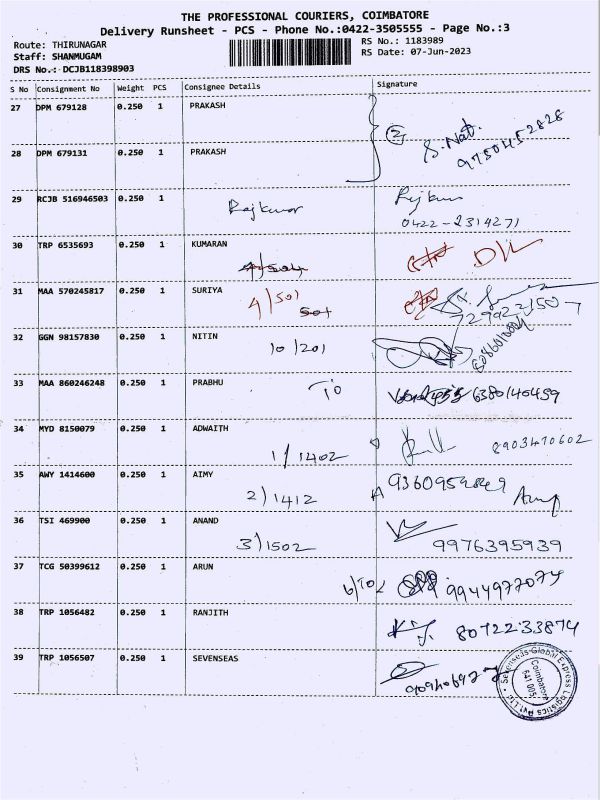 THE PROFESSIONAL COURIERS, COIMBATORE
Delivery Runsheet - PCS - Phone No.:0422-3505555 - Page No.:3
Route: THIRUNAGAR
Staff: SHANMUGAM
DRS No.: DCJB118398903
RS No.: 1183989
RS Date: 07-Jun-2023
S No Consignment No Weight PCS Consignee Details Signature
27 DPM 679128 0.250 1 PRAKASH
2 S. Nat.
9750452828
28 DPM 679131 0.250 1 PRAKASH
29 RCJB 516946503 0.250 1 Rajkumar
0422-2314271
30 TRP 6535693 0.250 1 KUMARAN
D/L
31 MAA 570245817 0.250 1 SURIYA
4/501
32 GGN 98157830 0.250 1 NITIN
10/201
33 MAA 860246248 0.250 1 PRABHU
TO 6380140459
34 MYD 8150079 0.250 1 ADWAITH
1/1402 8903470602
35 AWY 1414600 0.250 1 AIMY
2)1412
36 TSI 469900 0.250 1 ANAND
3)1502 9976395939
37 TCG 50399612 0.250 1 ARUN
9944977074
38 TRP 1056482 0.250 1 RANJITH
8072233874
39 TRP 1056507 0.250 1 SEVENSEAS
Sevenseas Global Express Logistics Pvt.Ltd
Coimbatore
641 005.